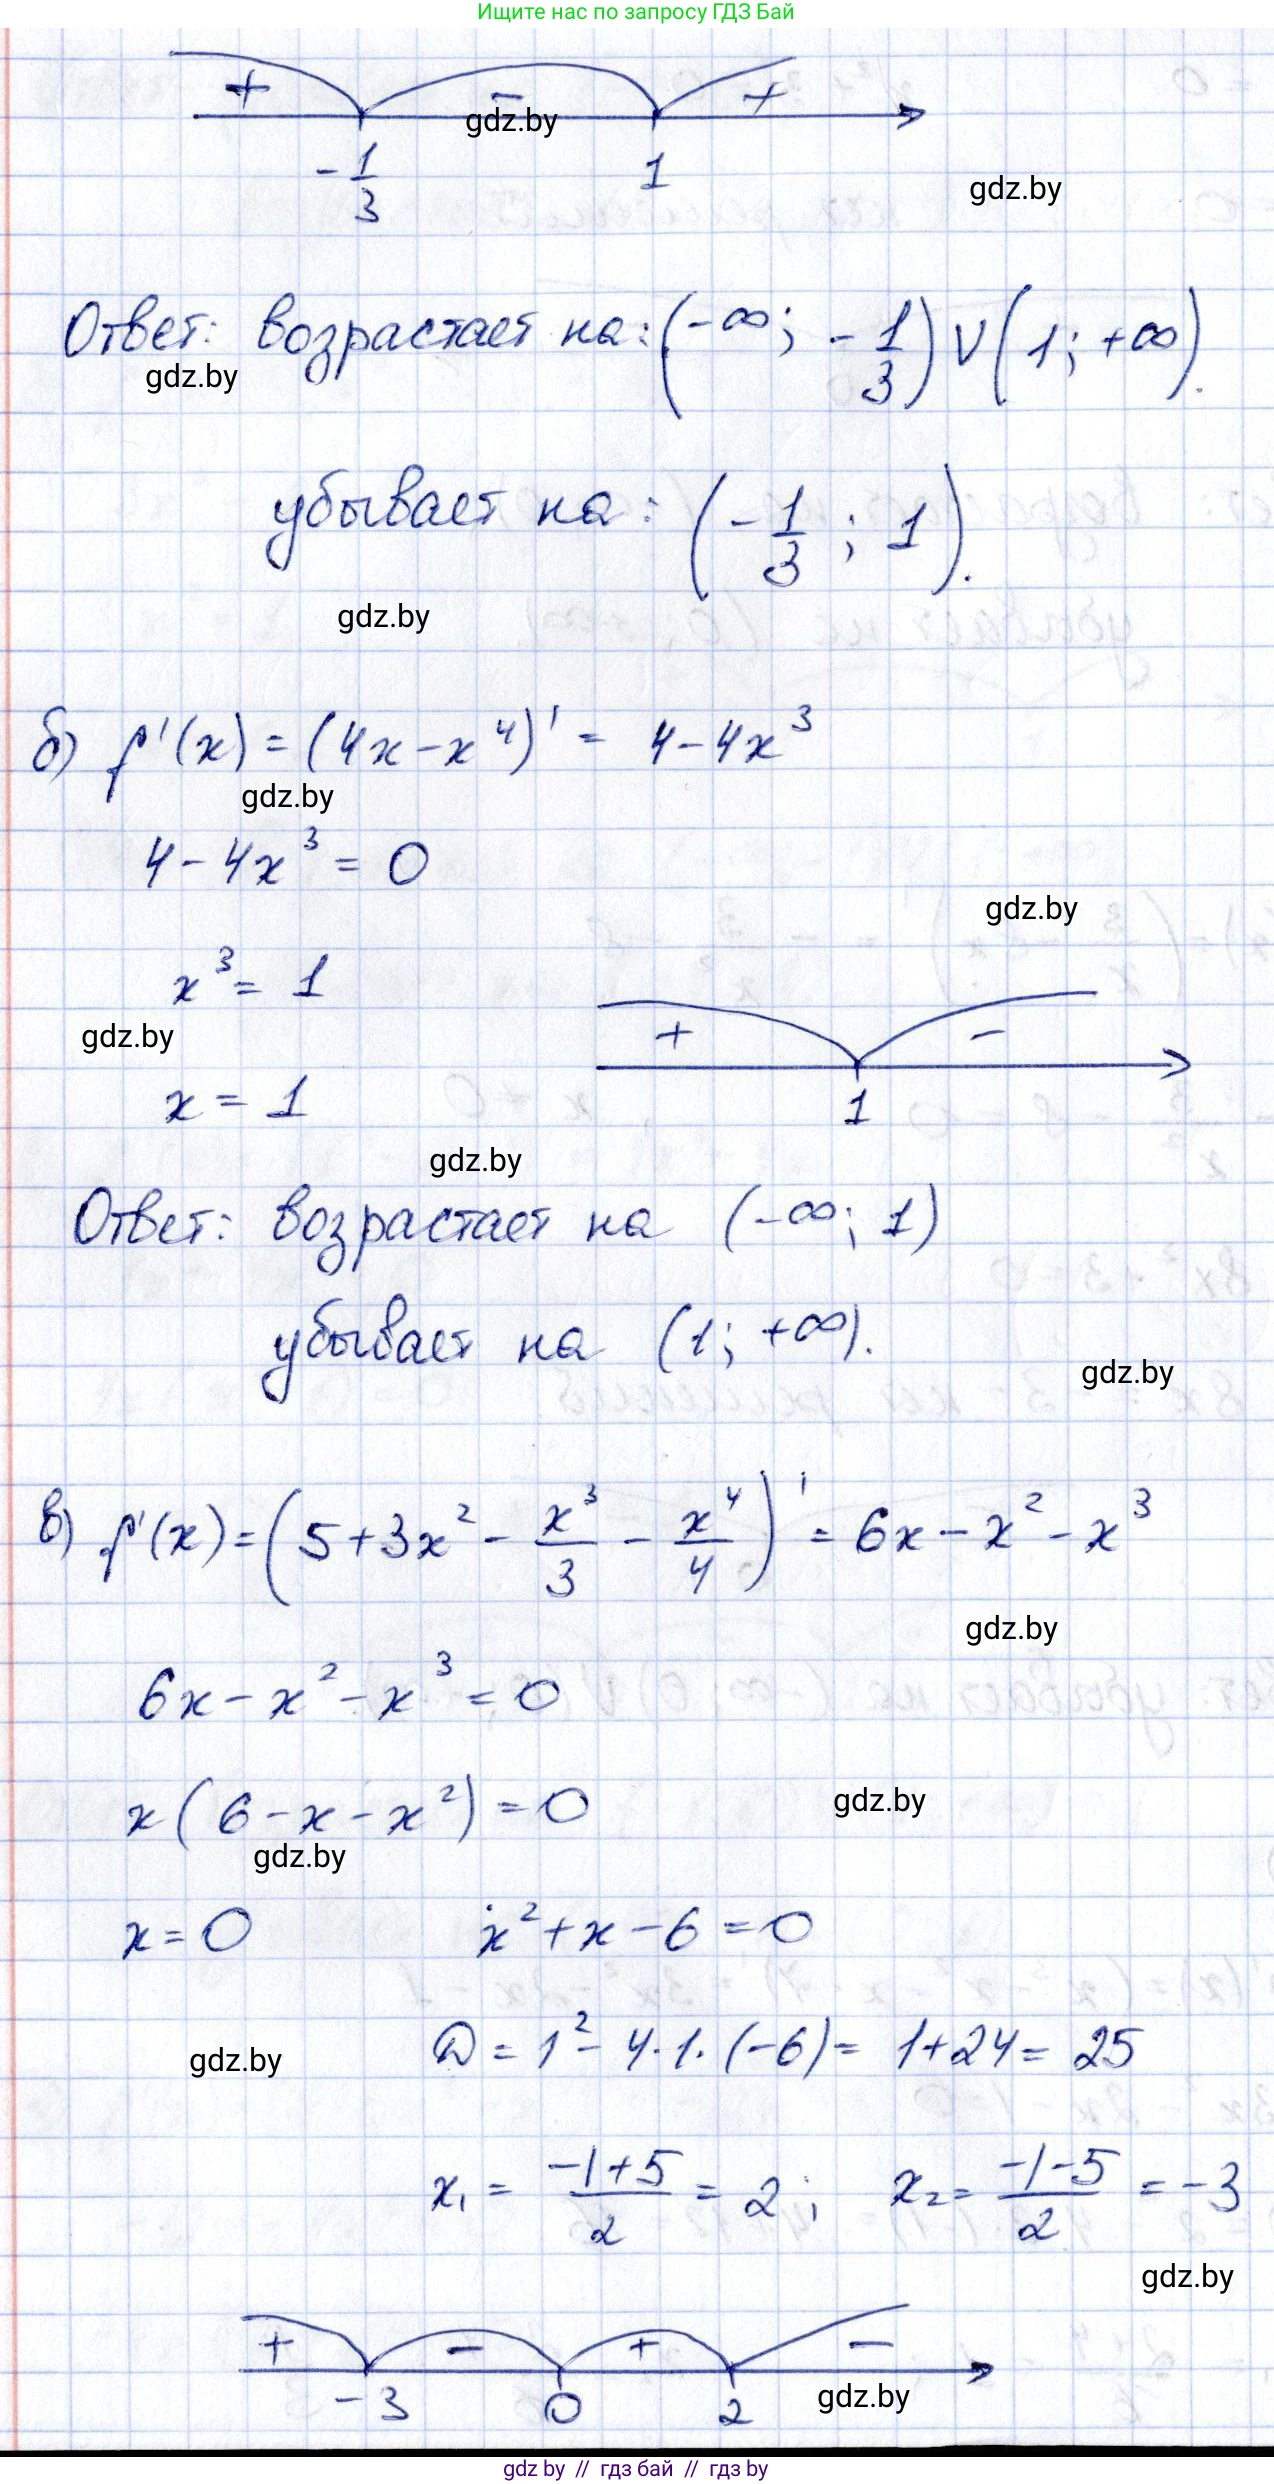 Ищите нас по запросу ГДЗ Бай
+ - +
gdz.by
-1/3 1
gdz.by
Ответ: возрастает на: (-∞; -1/3) ∨ (1; +∞).
gdz.by
убывает на: (-1/3; 1).
gdz.by
б) f'(x) = (4x-x⁴)' = 4-4x³
gdz.by
4-4x³ = 0
gdz.by
x³ = 1
+ -
gdz.by
x = 1
1
gdz.by
Ответ: возрастает на (-∞; 1)
убывает на (1; +∞).
gdz.by
в) f'(x) = (5+3x² - x³/3 - x⁴/4)' = 6x - x² - x³
gdz.by
6x - x² - x³ = 0
x(6 - x - x²) = 0
gdz.by
gdz.by
x = 0 x² + x - 6 = 0
D = 1² - 4·1·(-6) = 1+24 = 25
gdz.by
x₁ = (-1+5)/2 = 2; x₂ = (-1-5)/2 = -3
gdz.by
+ - + -
-3 0 2
gdz.by
gdz by // гдз бай // гдз by